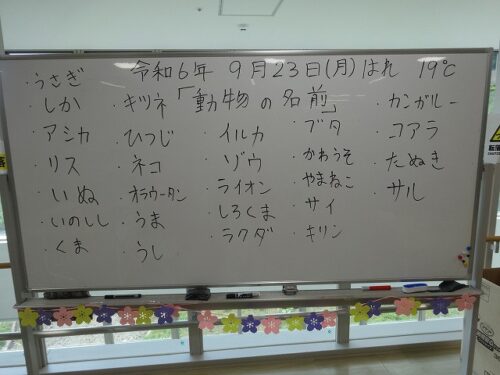 令和6年 9月23日(月) はれ 19℃
「動物の名前」
・うさぎ
・しか
・アシカ
・リス
・いぬ
・いのしし
・くま
・キツネ
・ひつじ
・ネコ
・オラウータン
・うま
・うし
・イルカ
・ゾウ
・ライオン
・しろくま
・ラクダ
・ブタ
・かわうそ
・やまねこ
・サイ
・キリン
・カンガルー
・コアラ
・たぬき
・サル